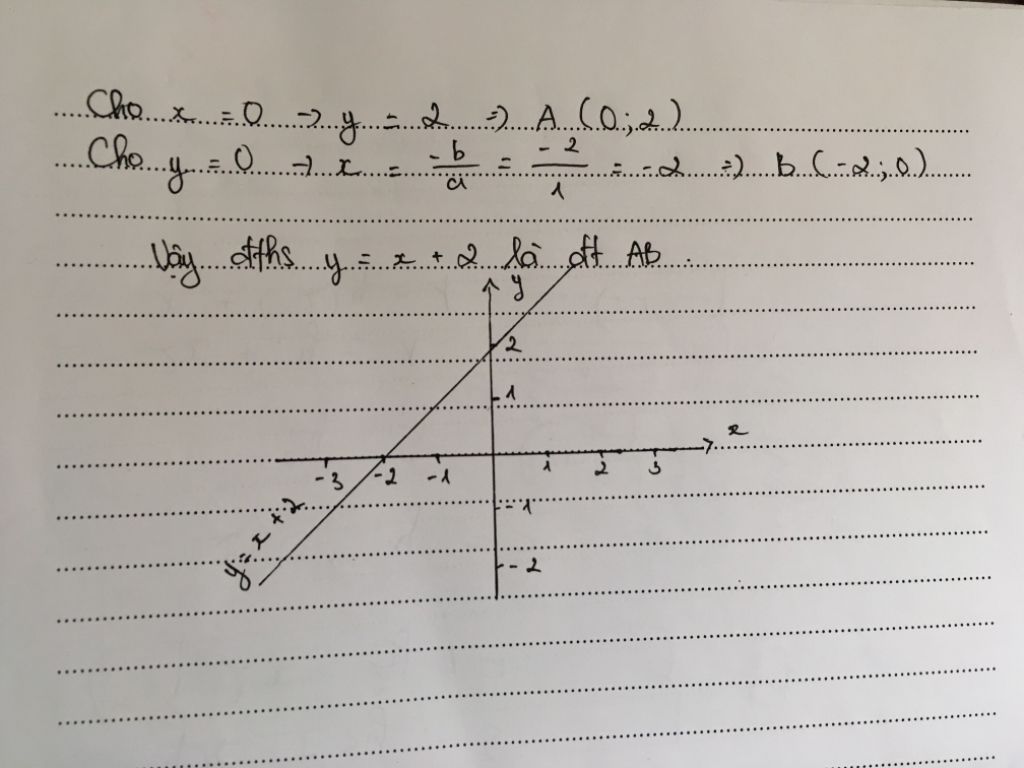 Cho x = 0 → y = 2 ⇒ A (0;2)
Cho y = 0 → x = -b/a = -2/1 = -2 ⇒ B (-2;0)
Vậy đths y = x + 2 là đt AB.
y
2
1
x
-3 -2 -1 1 2 3
-1
y = x + 2
-2